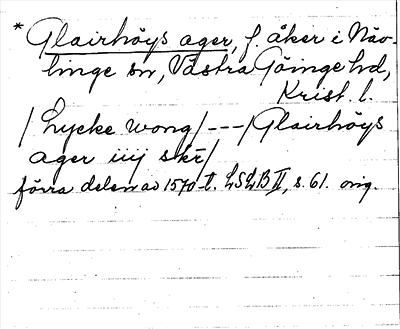 * Glairhöys ager, f. åker i Näv-
linge sn, Västra Göinge hd,
Krist. l.
/ Lycke wong / --- / Glairhöys
ager iiij skr /
förra delen av 1570-t. LSLB II, s. 61. orig.